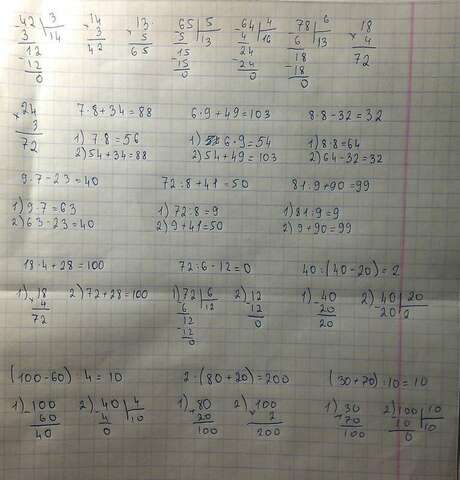 42 | 3   14   13   65 | 5   64 | 4   78 | 6   18
3 | 14   3   5   5 | 13   4 | 16   6 | 13   4
12   42   65   15   24   18   72
12   15   24   18
0   0   0   0
24
3
72
7·8+34=88   6·9+49=103   8·8-32=32
1) 7·8=56   1) 6·9=54   1) 8·8=64
2) 54+34=88   2) 54+49=103   2) 64-32=32
9·7-23=40   72:8+41=50   81:9+90=99
1) 9·7=63   1) 72:8=9   1) 81:9=9
2) 63-23=40   2) 9+41=50   2) 9+90=99
18·4+28=100   72:6-12=0   40:(40-20)=2
1) 18   2) 72+28=100   1) 72 | 6   2) 12   1) 40   2) 40 | 20
4   6 | 12   12   20   20 | 2
72   12   0   20   0
12
0
(100-60):4=10   2·(80+20)=200   (30+70):10=10
1) 100   2) 40 | 4   1) 80   2) 100   1) 30   2) 100 | 10
60   4 | 10   20   2   70   10 | 10
40   0   100   200   100   0